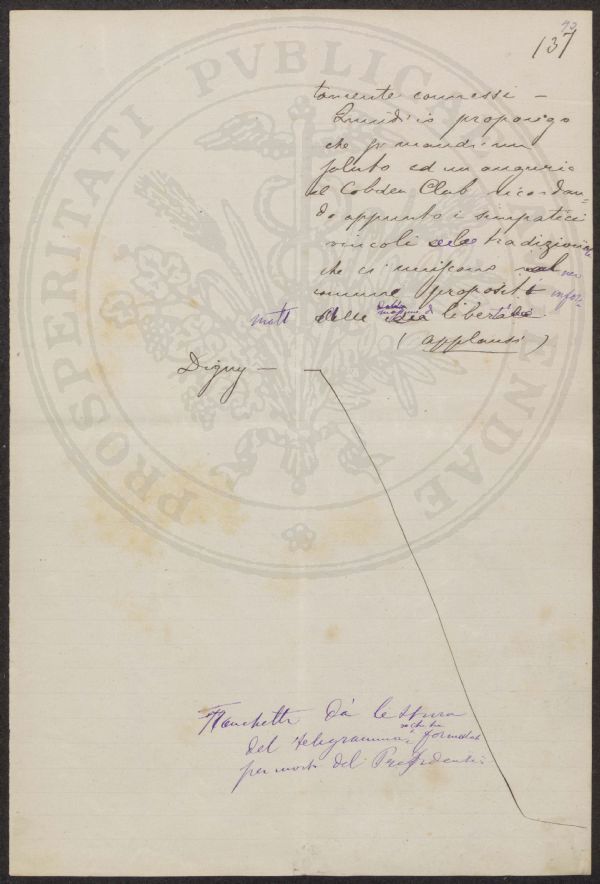 73
137
tamente connessi —
Quindi io propongo
che si mandi un
saluto ed un augurio
al Cobden Club ricordan-
do appunto i simpatici
vincoli e le tradizioni
che ci uniscono nel
comune proposito
delle libertà
(applausi)
Digny —
Franchetti dà lettura
del telegramma
del Presidente
PROSPERITATI PVBLICAE AVGENDAE